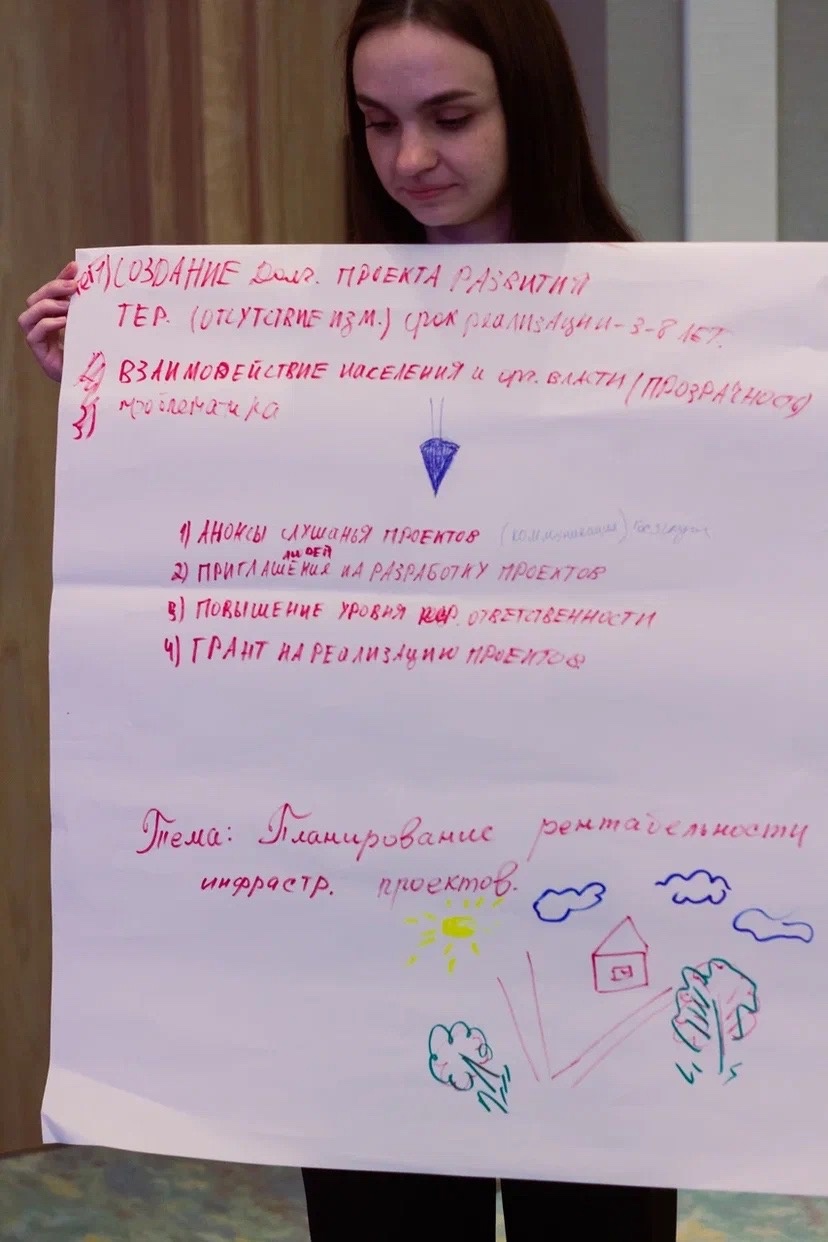 1) СОЗДАНИЕ Долг. ПРОЕКТА РАЗВИТИЯ
ТЕР. (ОТСУТСТВИЕ ИЗМ.) срок реализации - 3-8 ЛЕТ.
2) ВЗАИМОДЕЙСТВИЕ НАСЕЛЕНИЯ и орг. ВЛАСТИ (ПРОЗРАЧНОС
3)
1) АНОНСЫ СЛУШАНЬЯ ПРОЕКТОВ (коммуникация)
ЛЮДЕЙ
2) ПРИГЛАШЕНИЯ НА РАЗРАБОТКУ ПРОЕКТОВ
3) ПОВЫШЕНИЕ УРОВНЯ КОР. ОТВЕТСТВЕННОСТИ
4) ГРАНТ НА РЕАЛИЗАЦИЮ ПРОЕКТОВ
Тема: Планирование рентабельности
инфрастр. проектов.